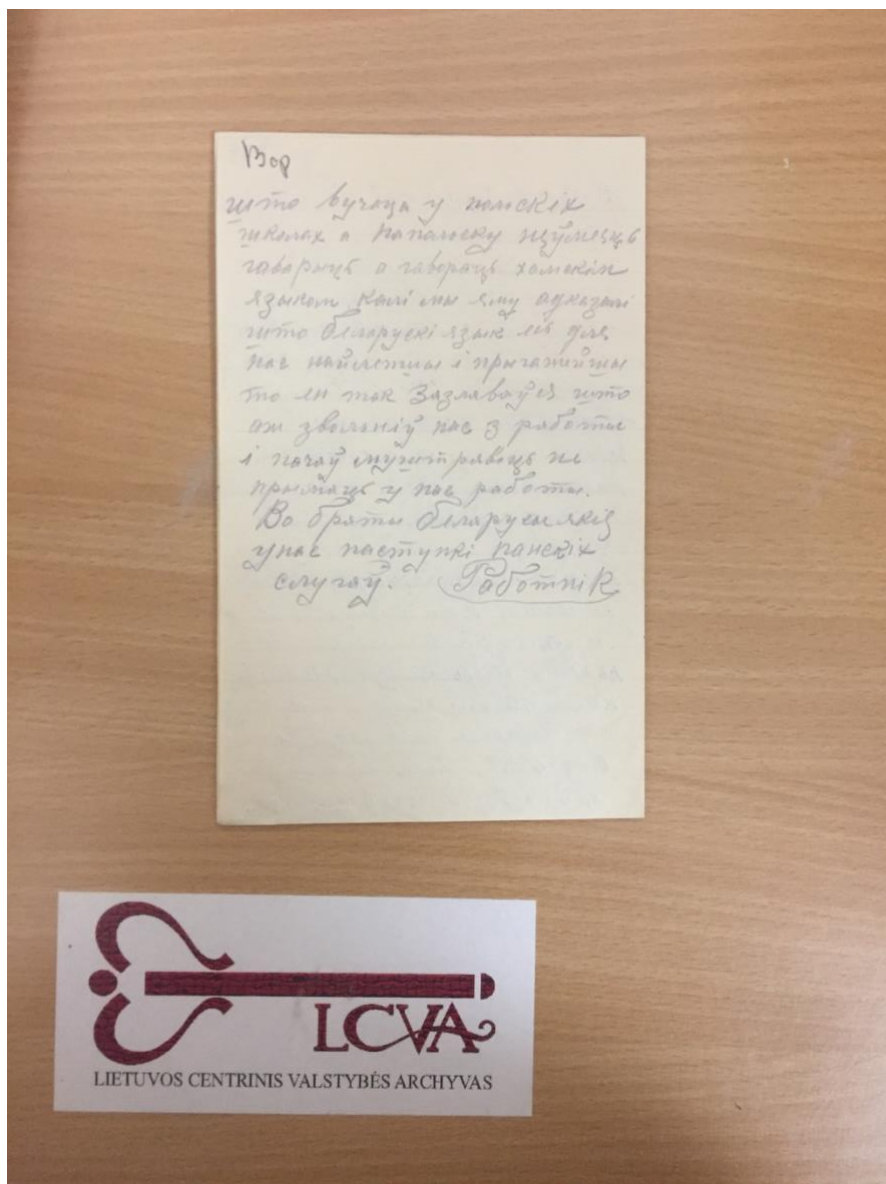 Вор
што вучаца у полскіх
школах а папольску нєўмеюць
гаварыць а гавораць хамскім
языком калі мы яму адказалі
што беларускі язык ёсь для
нас найлепшы і прыгажэйшы
то ен так Зазлаваўся што
аж звольніў нас з работы
і пачаў муштравіць не
прымаць у нас работы.
Во браты беларусы якіе
унас паступкі панскіх
слугаў. Работнік
LCVA
LIETUVOS CENTRINIS VALSTYBĖS ARCHYVAS